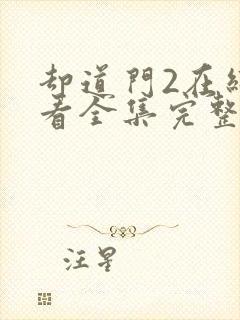 却道門2在
看全集完整
汪星